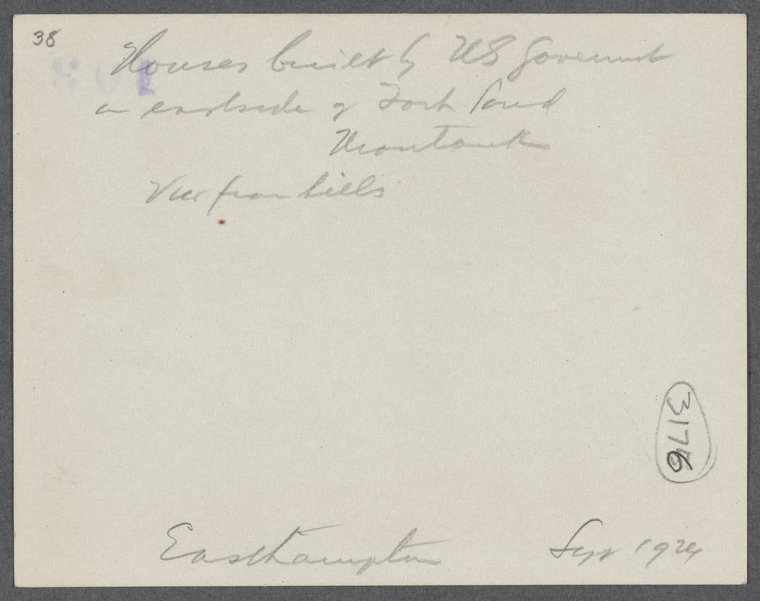 38
Houses built by US Goverment
on eastside of Fort Pond
Montauk
View from hills
3176
Easthampton Sept 1924